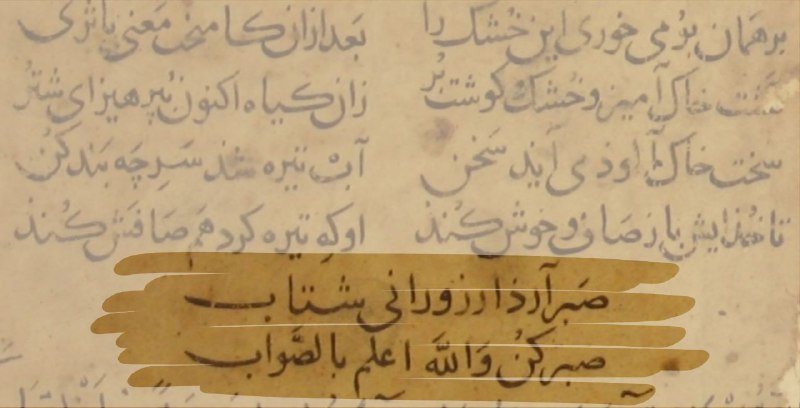 برهمان بو می خوری این خُشک را بَعد ازان کامیخت مَعنی باثری
کَشت خاک آمیز و خُشک و کوشت بُر زان کیاه اکنون بپرهیز ای شتُر
سخت خاک آلوذ می آید سَخن آبْ تیره شذ سَرِ چَه بَند کُنْ
تا خُذایش باز صَاف و خوش کُنذ اوکه تیره کرد هَم صَافش کُنذ
صَبر آرذ آرزو را نی شتاب
صبر کُنْ وَاللهَ اعلم بالصَّواب